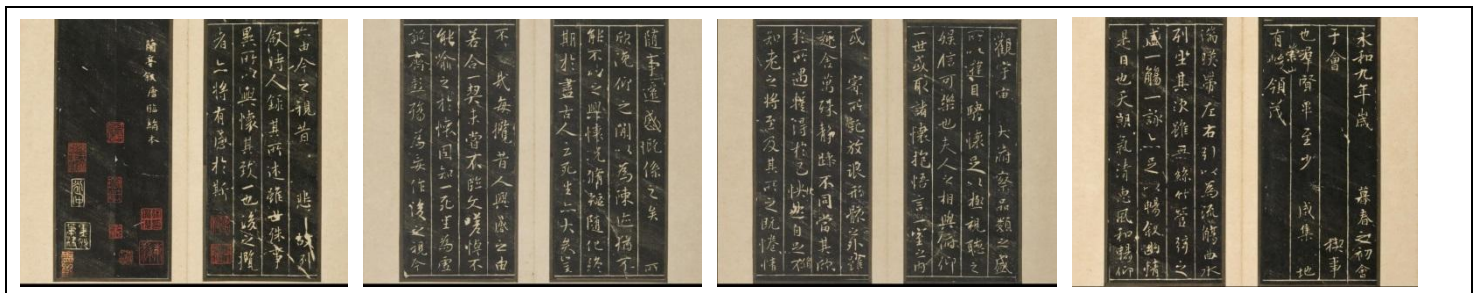 永和九年歲 暮春之初會
于會 禊事
也羣賢畢至少 咸集 地
有崇領茂
湍暎帶左右引以為流觴曲水
列坐其次雖無絲竹管弦之
盛一觴一詠亦足以暢敘幽情
是日也天朗氣清惠風和暢仰
觀宇宙 大府察品類之盛
所以遊目騁懷足以極視聽之
娛信可樂也夫人之相與俯仰
一世或取諸懷抱悟言一室之内
或 寄所託放浪形骸之外雖
趣舍萬殊静躁不同當其欣
於所遇蹔得於己快然自足不
知老之將至及其所之既惓情
隨事遷感慨係之矣 所
欣俛仰之閒以為陳迹猶不
能不以之興懷況脩短隨化終
期於盡古人云死生亦大矣豈
不 哉每攬昔人興感之由
若合一契未嘗不臨文嗟悼不
能喻之於懷固知一死生為虛
誕齊彭殤為妄作後之視今
亦由今之視昔 悲 故列
敘時人錄其所述雖世殊事
異所以興懷其致一也後之攬
者亦將有感於斯
蘭亭敘唐臨絹本